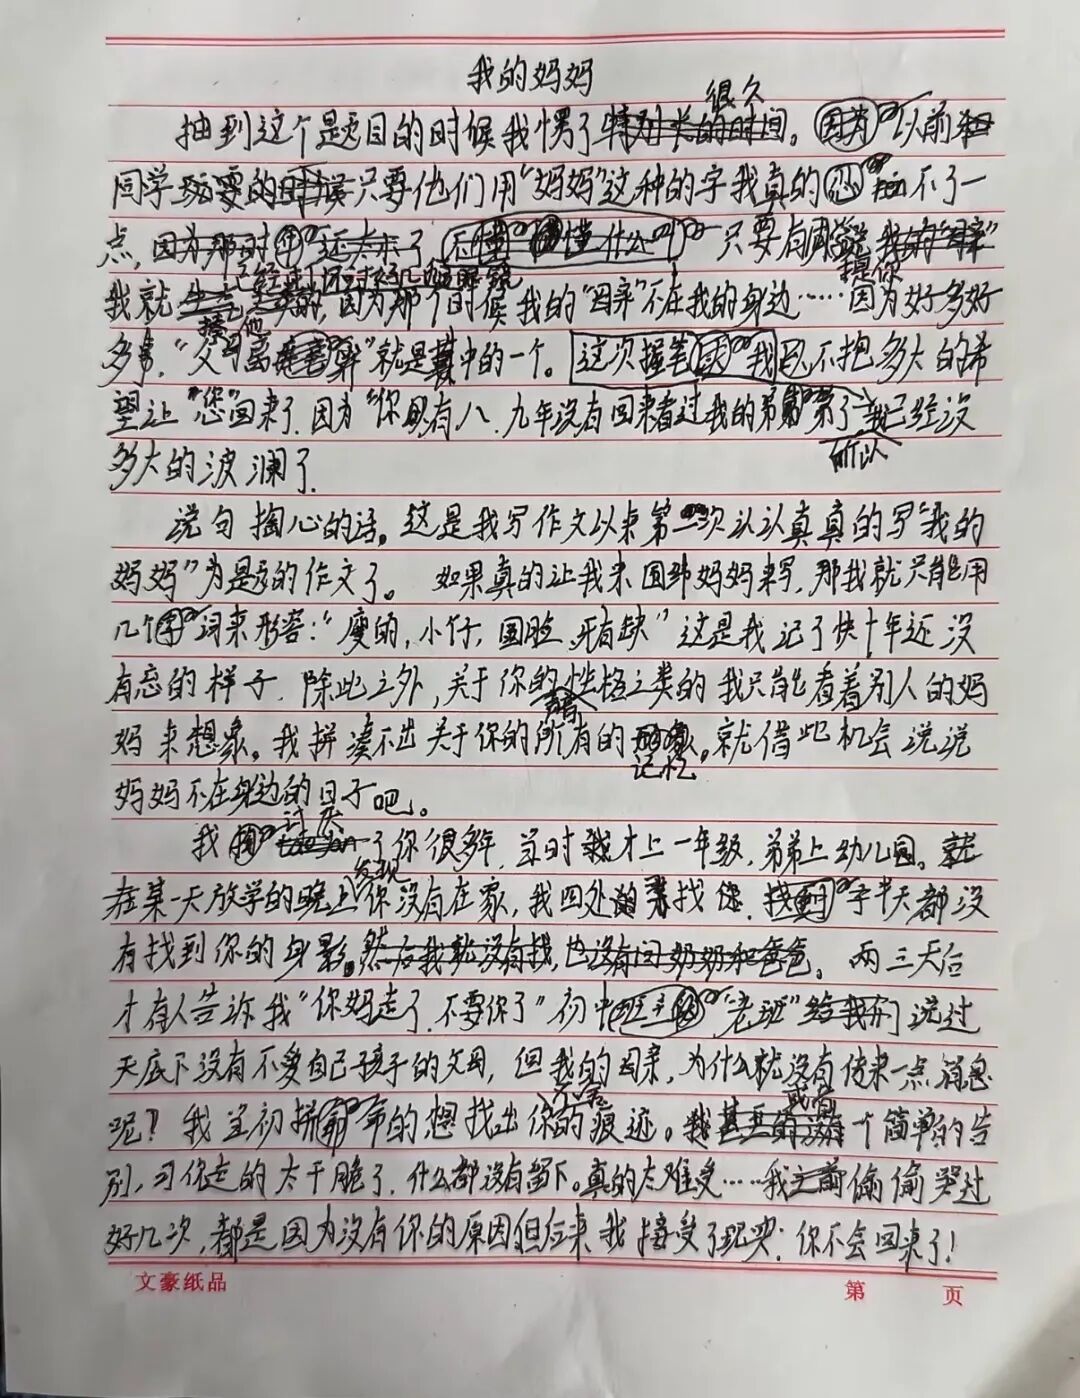 我的妈妈
很久
抽到这个是题目的时候我愣了特别长的时间。因为以前和
同学玩耍的时候只要他们用“妈妈”这种的字我真的忍不了一
点,因为那时还太 了 只要有同学
提你
我就 的,因为那个时候我的“母亲”不在我的身边……因为好多好
多事,“父母离 ”就是其中的一个。这次握笔 我已不抱多大的希
望让“您”回来了.因为“你 有八、九年没有回来看过我的弟弟了 我已经没
所以
多大的波澜了.
说句掏心的话,这是我写作文以来第一次认认真真的写“我的
妈妈”为是题的作文了。如果真的让我来圆绕妈妈来写,那我就只能用
几个 词来形容:“廋的,小仔,圆脸,牙有缺”这是我记了快十年还没
有忘的样子.除此之外,关于你的性格之类的我只能看着别人的妈
妈来想象。我拼凑不出关于你的所有的 ,就借此机会说说
记忆
妈妈不在身边的日子吧。
讨厌
我 了你很多年,当时我才上一年级,弟弟上幼儿园。就
发现
在某一天放学的晚上你没有在家,我四处的寻找你.找 半天都没
有找到你的身影,然后我就没有找,也没有问奶奶和爸爸。两三天后
才有人告诉我“你妈走了.不要你了”初中班主任“老班”给我们说过
天底下没有不爱自己孩子的父母,但我的母亲,为什么就没有传来一点消息
呢?我 初拼 命的想找出你的痕迹。我甚至的没有一个简单的告
别,可你走的太干脆了.什么都没有留下。真的太难受……我之前偷偷哭过
好几次,都是因为没有你的原因但后来我接受了现实:你不会回来了!
文豪纸品
第 页